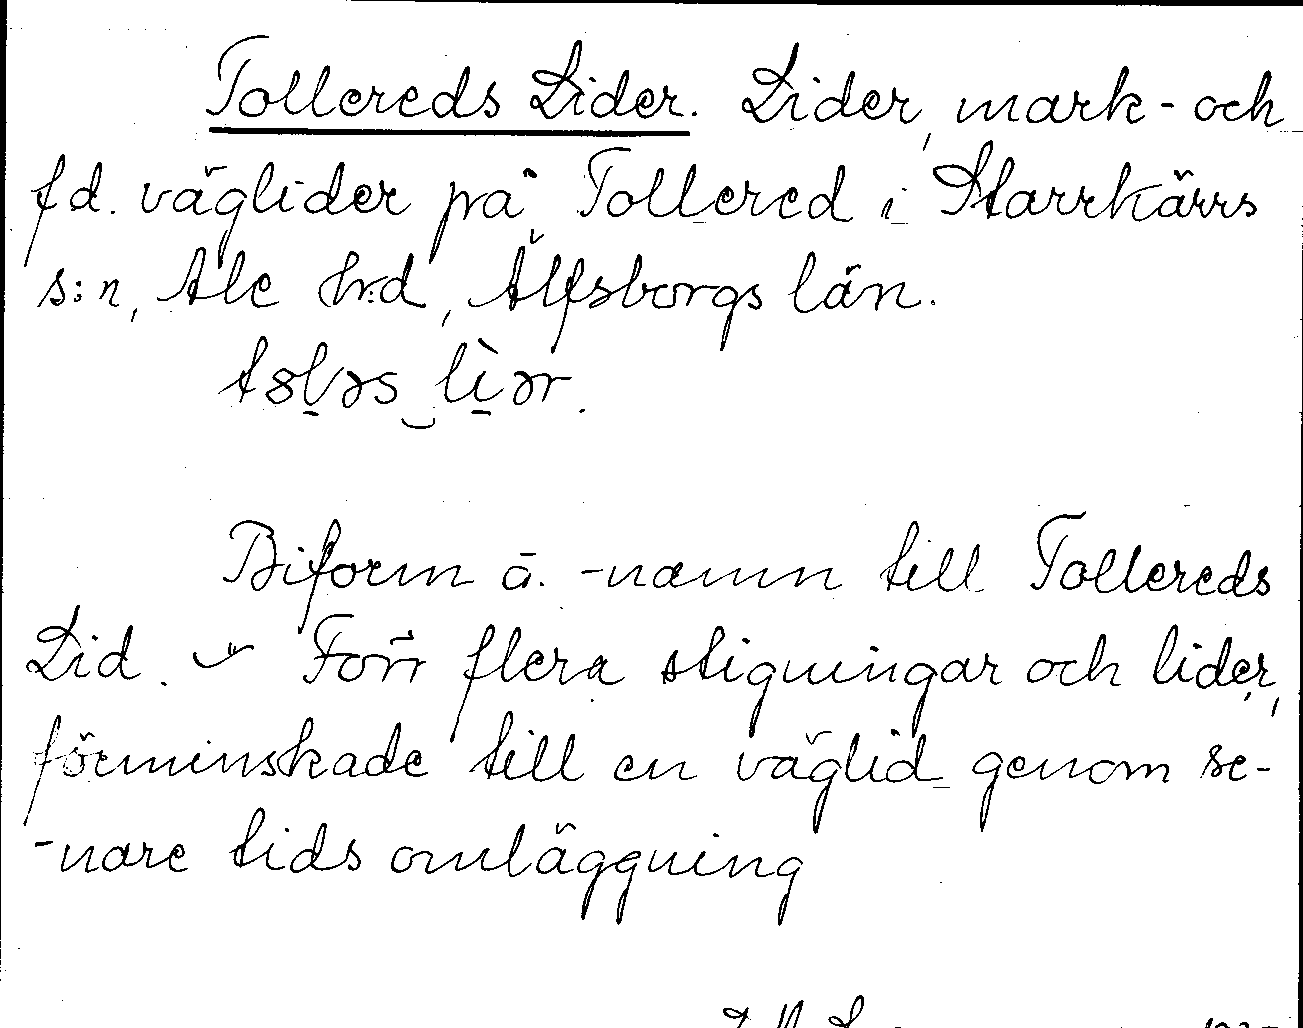 Tollereds Lider. Lider, mark- och
fd. väglider på Tollered i Starrkärrs
s:n, Ale hrd, Älfsborgs län.
Biform ä. -namn till Tollereds
Lid. Förr flera stigningar och lider,
förminskade till en väglid genom se-
-nare tids omläggning